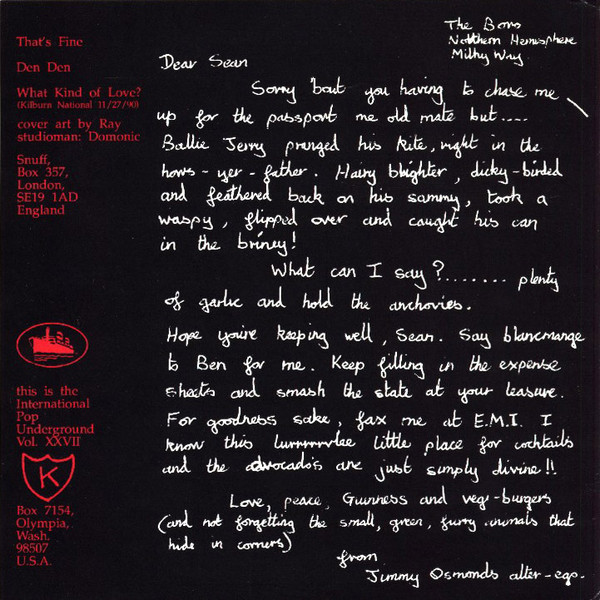 That's Fine
Den Den
What Kind of Love?
(Kilburn National 11/27/90)
cover art by Ray
studioman: Domonic
Snuff,
Box 357,
London,
SE19 1AD
England
this is the
International
Pop
Underground
Vol. XXVII
K
Box 7154,
Olympia,
Wash.
98507
U.S.A.
The Boro
Northern Hemisphere
Milky Way.
Dear Sean
Sorry 'bout you having to chase me
up for the passport me old mate but....
Ballie Jerry pranged his kite, right in the
hows-yer-father. Hairy blighter, dicky-birded
and feathered back on his sammy, took a
waspy, flipped over and caught his can
in the briney!
What can I say?........ plenty
of garlic and hold the anchovies.
Hope you're keeping well, Sean. Say blancmange
to Ben for me. Keep filling in the expense
sheets and smash the state at your leasure.
For goodness sake, fax me at E.M.I. I
know this little place for cocktails
and the advocado's are just simply divine!!
Love, peace, Guinness and vegi-burgers
(and not forgetting the small, green, furry animals that
hide in corners)
from
Jimmy Osmonds alter-ego.